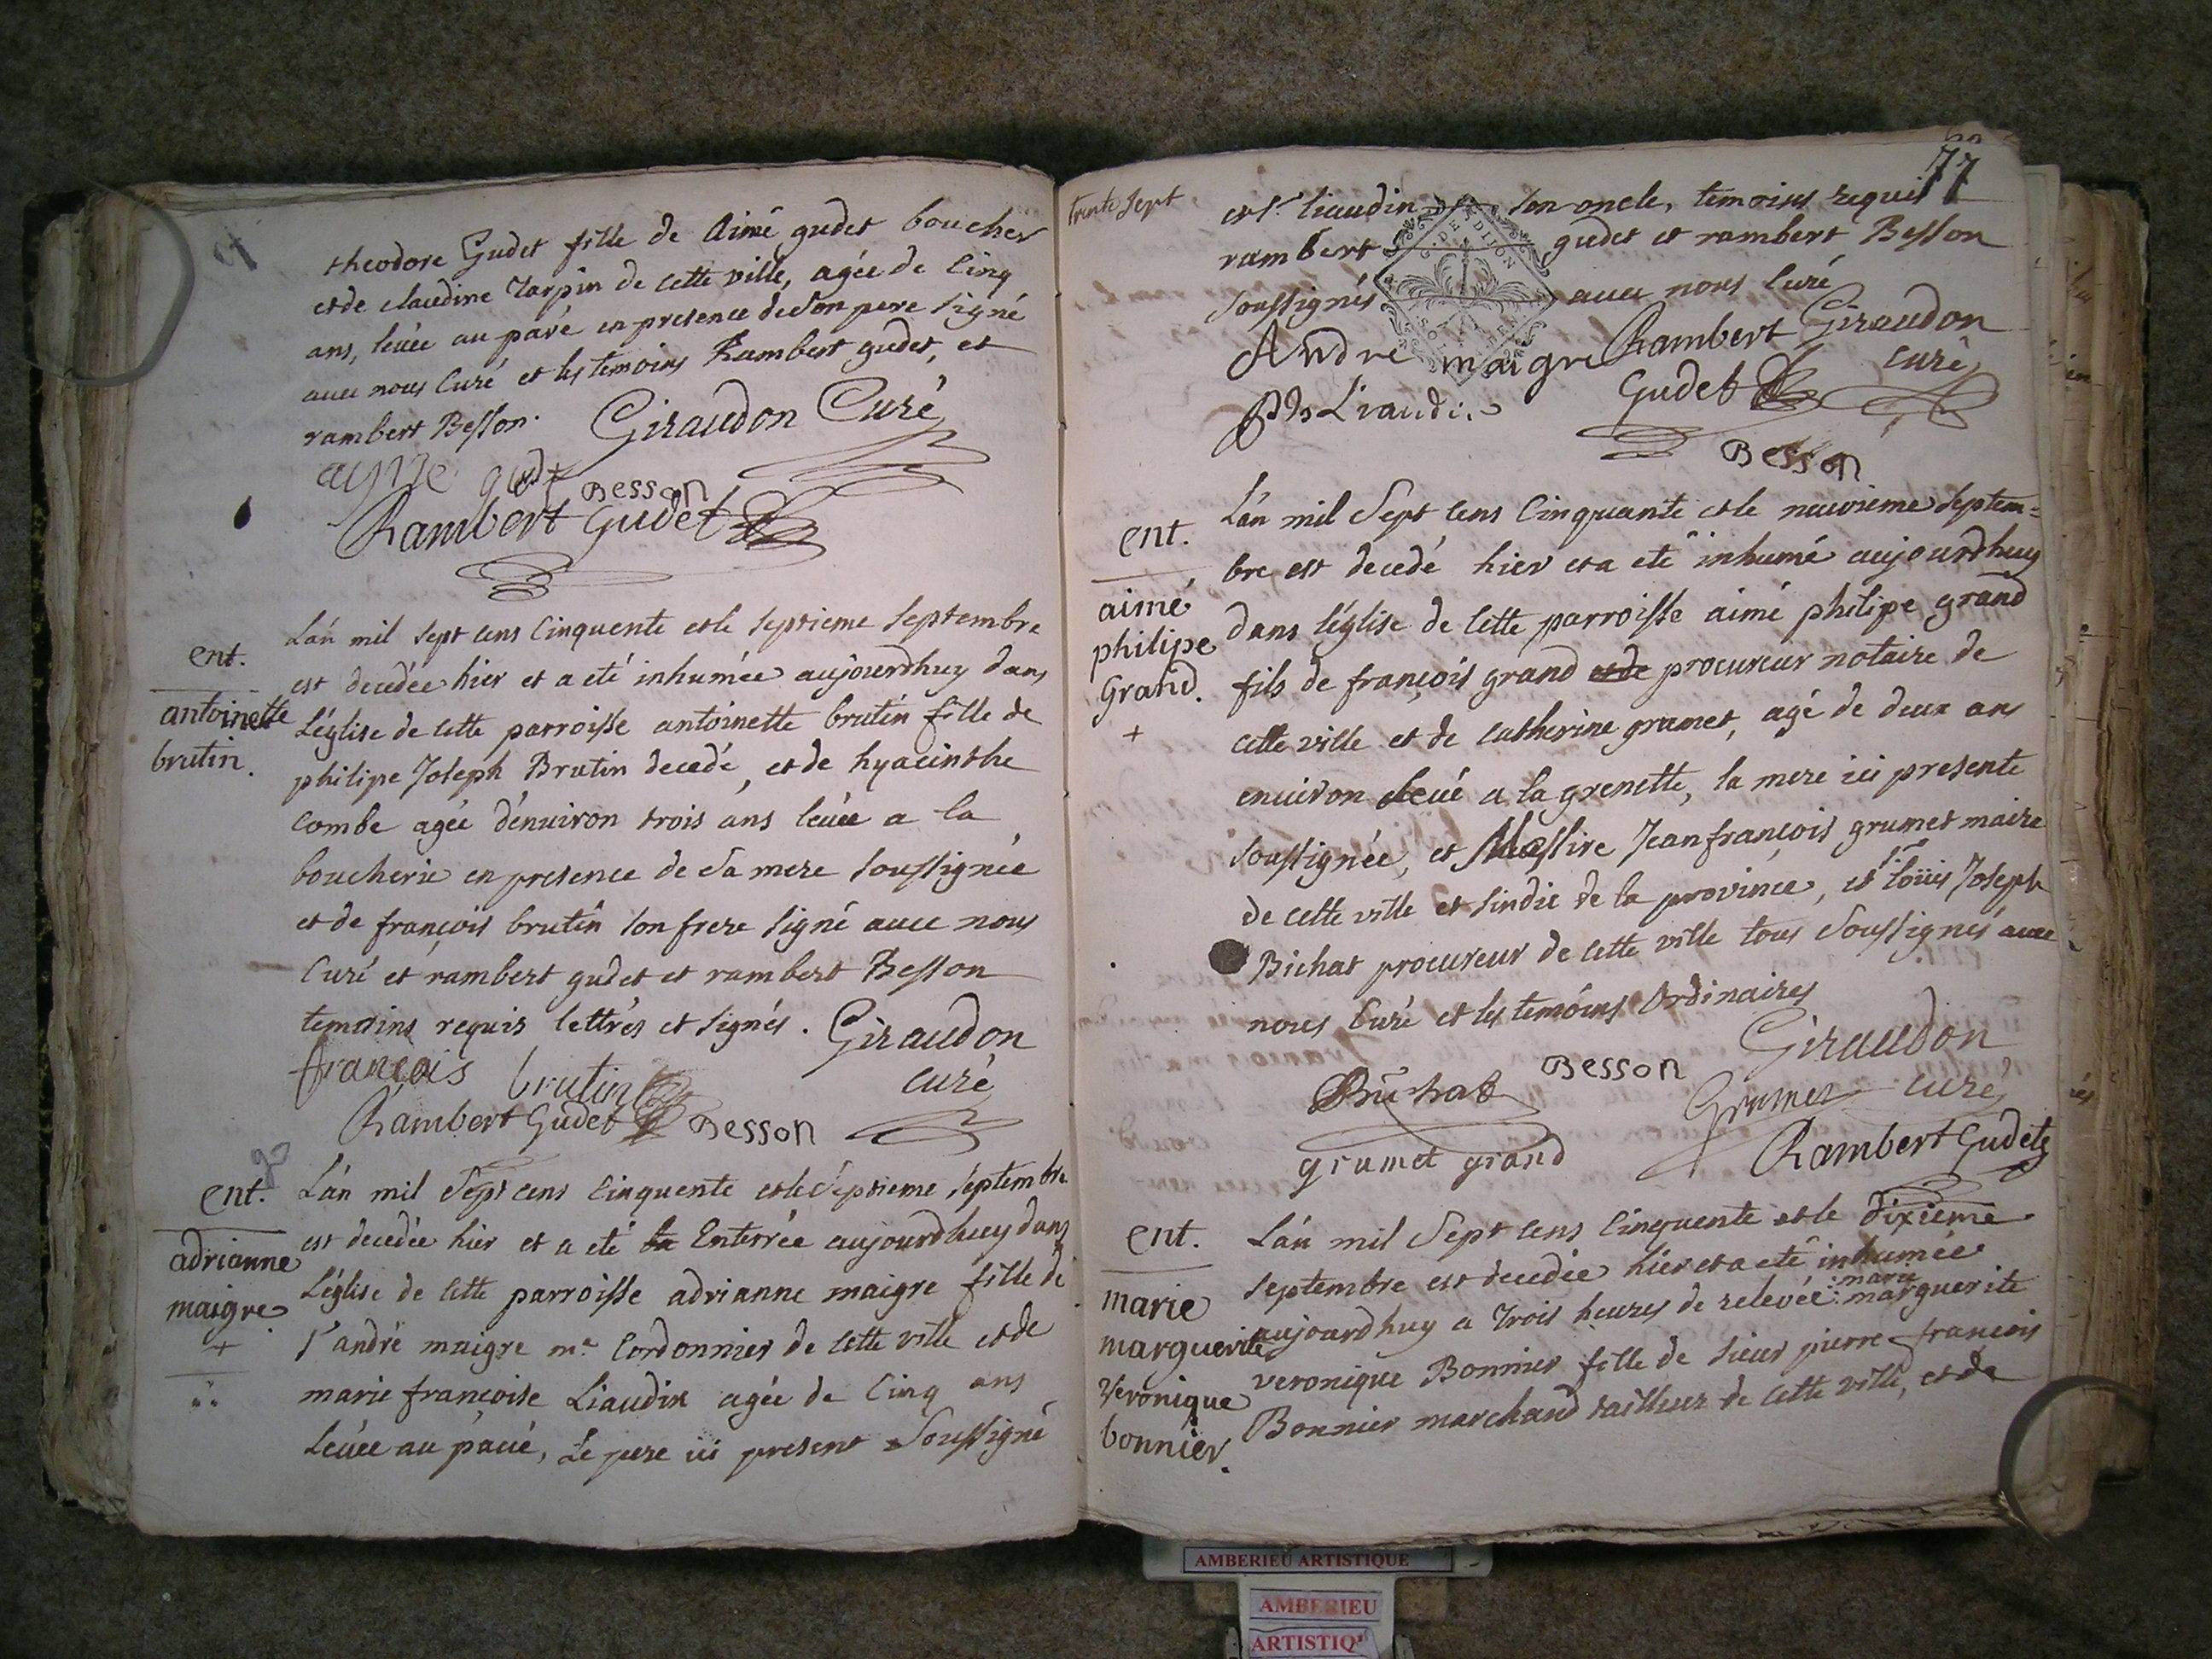 theodore Gudet fille de Aimé gudet boucher
et de claudine Tarpin de cette ville, agée de Cinq
ans, levée au pavé en presence de son pere signé
avec nous Curé et les temoins Rambert gudet, et
rambert Besson. Giraudon Curé
ayme gudet Besson
Rambert Gudet
ent.
antoinette
brutin.
L'an mil sept cens Cinquente et le septieme septembre
est decedée hier et a eté inhumée aujourdhuy dans
L'église de cette parroisse antoinette brutin fille de
philipe Joseph Brutin decedé, et de hyacinthe
Combe agée d'environ trois ans levée a la
boucherie en presence de sa mere soussignée
et de françois brutin son frere signé avec nous
Curé et rambert gudet et rambert Besson
temoins requis lettrés et signés. Giraudon
françois brutin curé
Rambert Gudet Besson
ent.
adrianne
maigre
+
L'an mil Sept cens Cinquente et le Septieme Septembre
est decedée hier et a eté Enterrée aujourdhuy dans
L'église de cette parroisse adrianne maigre fille de
Sr andré maigre me Cordonnier de cette ville et de
marie françoise Liaudin agée de Cinq ans
Levée au pavé, Le pere ici present Soussigné
trente sept
77
et Sr liaudin son oncle, temoins requis
rambert gudet et rambert Besson
soussignés avec nous Curé
G. DE DIJON
Andre maigre Rambert Giraudon
Liaudin Gudet curé
Besson
ent.
aimé
philipe
Grand.
+
L'an mil Sept cens Cinquante et le neuvieme Septem=
bre est decedé hier et a eté inhumé aujourdhuy
dans l'église de cette parroisse aimé philipe grand
fils de françois grand et de procureur notaire de
cette ville et de catherine grumet, agé de deux ans
environ levé a la grenette, la mere ici presente
soussignée, et Messire Jean françois grumet maire
de cette ville et sindic de la province, et Sr loüis Joseph
Bichat procureur de cette ville tous Soussignés avec
nous Curé et les temoins Ordinaires
Besson Giraudon
Bichat Grumet curé
grumet grand Rambert Gudet
ent.
marie
marguerite
Veronique
bonnier.
L'an mil Sept cens Cinquente et le dixieme
septembre est decedée hier et a eté inhumée
marie
aujourdhuy a Trois heures de relevée marguerite
veronique Bonnier fille de sieur pierre françois
Bonnier marchand tailleur de cette ville, et de
AMBERIEU ARTISTIQUE
AMBERIEU
ARTISTIQ